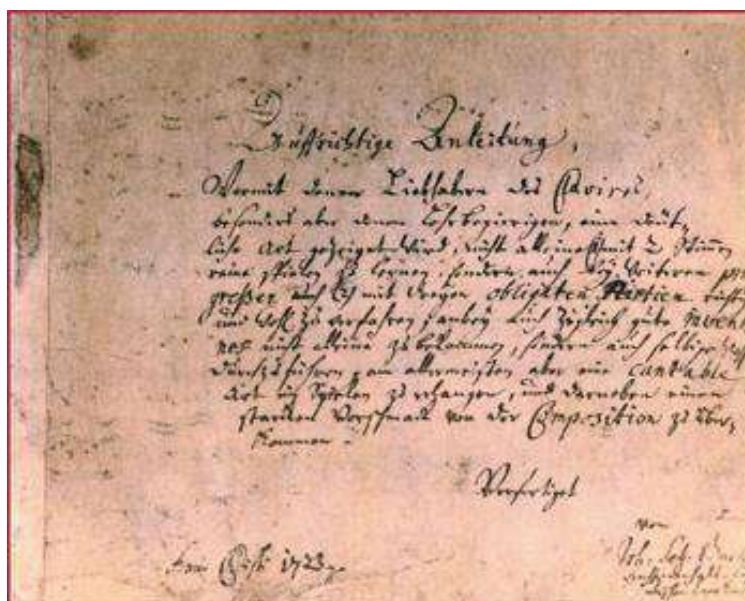 Auffrichtige Anleitung,
Wormit denen Liebhabern des Clavires,
besonders aber denen Lehrbegierigen, eine deüt-
liche Art gezeiget wird, nicht alleine mit 2 Stimen
reine spielen zu lernen, sondern auch bey weiteren pro
greßen auch mit dreyen obligaten Partien richtig
und wohl zu verfahren, anbey auch zugleich gute inventi
nes nicht alleine zu bekommen, sondern auch selbige wohl
durchzuführen, am allermeisten aber eine cantable
Art im Spielen zu erlangen, und darneben einen
starcken Vorschmack von der Composition zu über-
kommen.
Verfertiget
von
Anno Christi 1723.
Joh. Seb. Bach